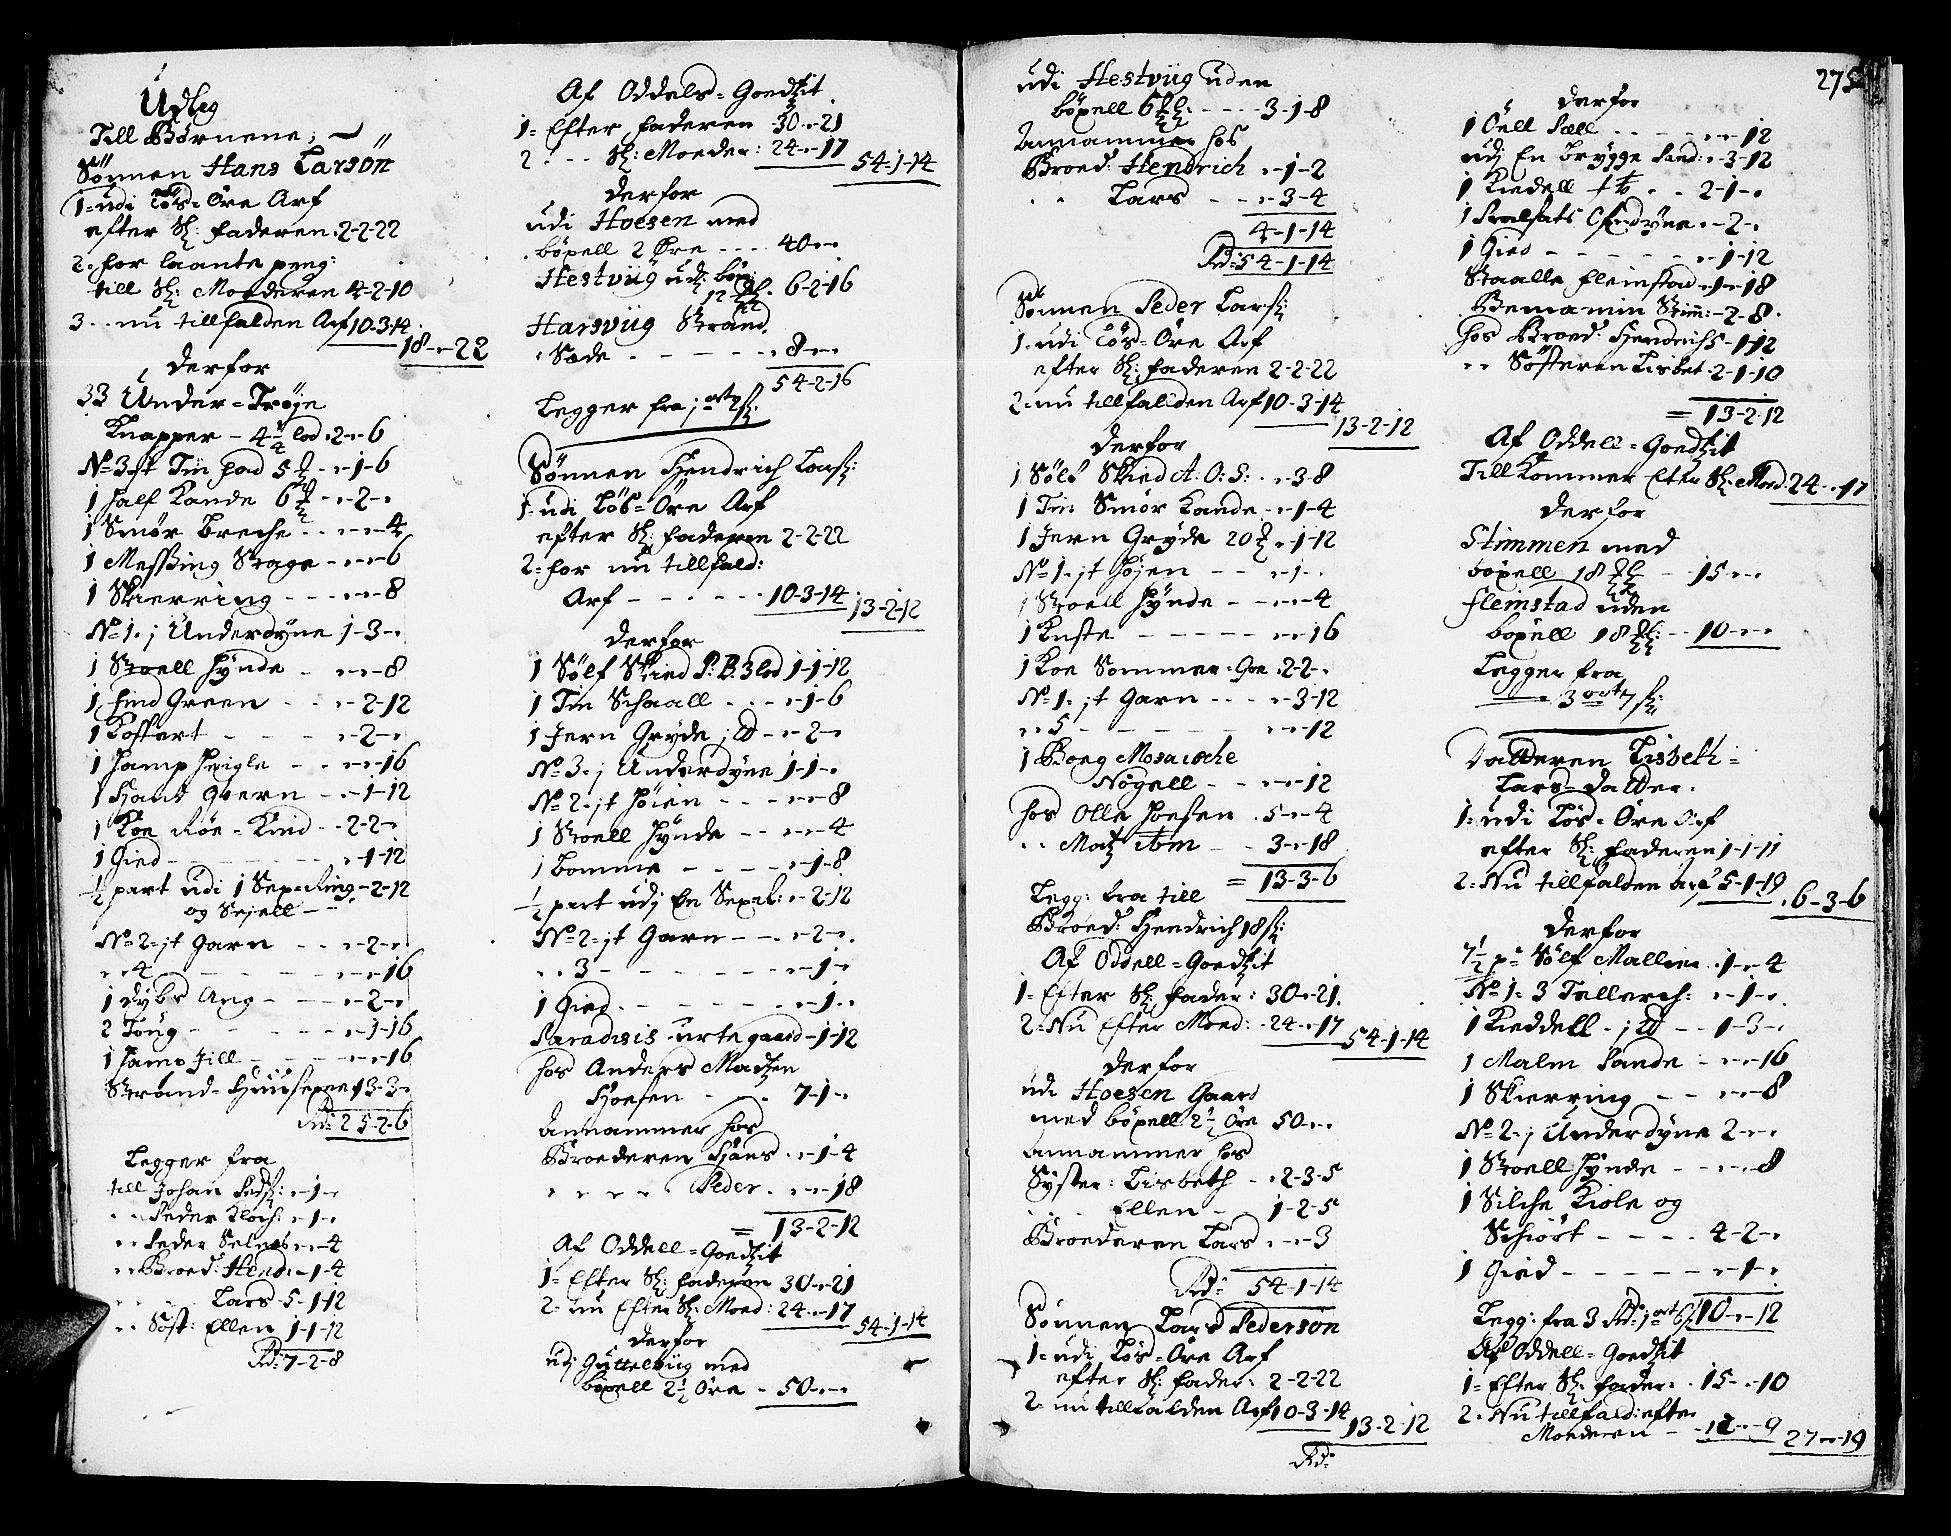 Udleg
Till Börnene;
Sönnen Hans Larsön
1= udi Lös=Öre Arf
efter Sl: Faderen 2-2-22
2= for laante peng:
till Sl: Moederen 4-2-10
3 . . nu tillfalden Arf 10-3-14
18-"-22
Derfor
33 Under=Tröje
Knapper - 4¼ lod 2-"-6
No 3 . jt Tin Fad 5 - "-1-6
1 Half Kande 6 "-2-"
1 Smör Breche . . "-"-4
1 Messing Stage - "-"-6
1 Skierring - - - "-"-8
No 1. j Underdyne 1-3-"
1 Stoell Hynde - "-"-8
1 Hind Green . . "-2-12
1 Koffert - - - "-2-"
1 Hamp Heigle - "-"-16
1 Hand Qvern - "-1-12
1 Koe Röe=Kind - 2-2-"
1 Gied - - - - "-1-12
½ part udi 1 Sexæring "-2-12
og Sejell
No 2= jt Garn . . "-2-"
" "4 - - - - "-"-16
1 Dybs Ang - - "-2-"
2 Toug - - - - "-1-16
1 Hamp Jill - - "-"-16
Strand=Huusexne 13-3-"
Rd: 25-2-6
Legger fra
till Johan Peds: "-1-"
" " Peder Kloch: "-1-"
" " Peder Selnes "-"-4
" " Broed: Hend: "-1-4
" " Lars 5-1-12
" " Söst: Ellen 1-1-12
Rd: 7-2-8
Af Oddels=Goedtzit
1= Efter Faderen 30-"-21
2 . . . Sl: Moeder: 24-"-17
54-1-14
Derfor
udi Hoesen med
böxell 2 Öre - - - 40-"-"
Hestviig udj böx:
12 6-2-16
Harsviig Strand
Sæde . - - - - "8-"-"
54-2-16
Legger fra j ort 2 s:
Sönnen Hendrich Lars:
1= udi Lös=Öre Arf
efter Sl: Faderen 2-2-22
2= for nu tillfald:
Arf - - . - - . 10-3-14
13-2-12
Derfor
1 Sölf Skied P: B. 3 lod 1-1-12
1 Tin Schaall . . . "-1-6
1 Jern Gryde ; "-2-"
No 3. j Underdyne 1-1-"
No 2. jt Höien - - - "-"-8
1 Stoell Hynde - - "-"-4
1 Bomme - - - - "-1-8
½ part udj En Sexæ: "-2-12
No 2= jt Garn - - "-2-"
" " 3 - - - - - "-1-"
1 Gied - - - - "-1-"
Paradisis urtegaard - 1-12
hos Anders Madtzen
Hoesen - - - 7-1-"
Annammer hos
Broederen Hans . "-1-4
" " " " Peder . "-"-18
= 13-2-12
Af Oddell=Goedtzit
1= Efter Sl: Faderen 30-"-21
2= nu Efter Sl: Moed: 24-"-17
54-1-14
Derfor
udj Gyttelviig med
böxell 2½ Öre - 50-"-"
275
udi Hestviig uden
böxell 6 - - - - 3-1-8
Annammer hos
Broed: Hendrich "-1-2
" " Lars - - "-3-4
4-1-14
Rd: 54-1-14
Sönnen Peder Lars:
1= udi Lös=Öre Arf
efter Sl: Faderen 2-2-22
2= nu tillfallden Arf 10-3-14
13-2-12
Derfor
1 Sölf Skied A: O: S: . "-3-8
1 Tin Smör Kande - "-1-4
1 Jern Gryde 20 "-1-12
No 1. jt Höjen - - "-1-"
1 Stoell Hynde - "-"-4
1 Kuste - - - - - "-"-16
1 Koe Sommer=Goe 2-2-"
No 1. jt Garn - - - "-3-12
" " 5 - - - - - "-"-12
1 Boeg Mosaische
Nögell - - "-"-12
hos Olle Hoesen . 5-"-4
" " Matz ibm - . 3-"-18
= 13-3-6
Legg: fra till
Broed: Hendrich 18 s:
Af Oddell=Goedtzit
1= Efter Sl: Fader: 30-"-21
2= Nu Efter Moed: 24-"-17
54-1-14
Derfor
udi Hoesen Gaard
med böxell 2½ Öre 50-"-"
Annammer hos
Syster: Lisbeth - "2-3-5
. . Ellen - 1-2-5
Broederen Lars "-"-3
Rd: 54-1-14
Sönnen Lars Pedersön
1= udi Lös=Öre Arf
efter Sl: Fader: 2-2-22
2= nu tillfalden Arf 10-3-14
13-2-12
Rd:
Derfor
1 Öell Fæll . . - - "-"-12
udj En Brygge Pand: "-3-12
1 Kiedell . . 2-1-"
1 "-2-"
1 Gied - - - - - "-1-12
Staalle Fleinstad "-1-18
Bemamin Stim: -2-8
hos Broed: Hendrich 5-1-12
" " Sösteren Lisbet 2-1-10
= 13-2-12
Af Oddell=Goedtzit
Till Kommer Efter Sl: Moed 24-"-17
Derfor
Stimmen med
böxell 18 - 15-"-"
Fleinstad uden
böxell 18 - 10-"-"
Legger fra
3 ort 7 s:
Datteren Lisbeth=
Lars=Datter.
1= udi Lös=Öre Arf
efter Sl: Faderen 1-1-11
2= Nu tillfalden Arf 5-1-19
6-3-6
Derfor
7½ ps Sölf Mallier . 1-"-4
No 1= 3 Tellerch: "-1-"
1 Kieddell . ; - - 1-3-"
1 Malm Pande . "-"-16
1 Skierring - - "-"-8
No 2= j Underdyne 2-"-"
1 Stoell Hynde - "-"-8
1 Silche Kiole og
Schiört - - - - 4-2-"
1 Gied - - - - - "-1-"
Legg: fra 3 Rd: 1 ort 6 s 10-"-12
Af Oddell=Goedtzit
1= Efter Sl: Fader: . 15-"-10
2= Nu tillfald: efter
Moederen - - 12-"-9
27-"-19